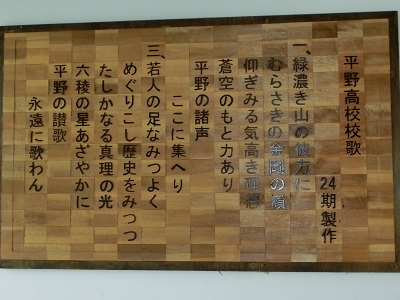 平野高校校歌
24期製作
一、緑濃き山の彼方に
むらさきの金剛の嶺
仰ぎみる気高き理想
蒼空のもと力あり
平野の諸声
ここに集へり
三、若人の足なみつよく
めぐりこし歴史をみつつ
たしかなる真理の光
六稜の星あざやかに
平野の讃歌
永遠に歌わん